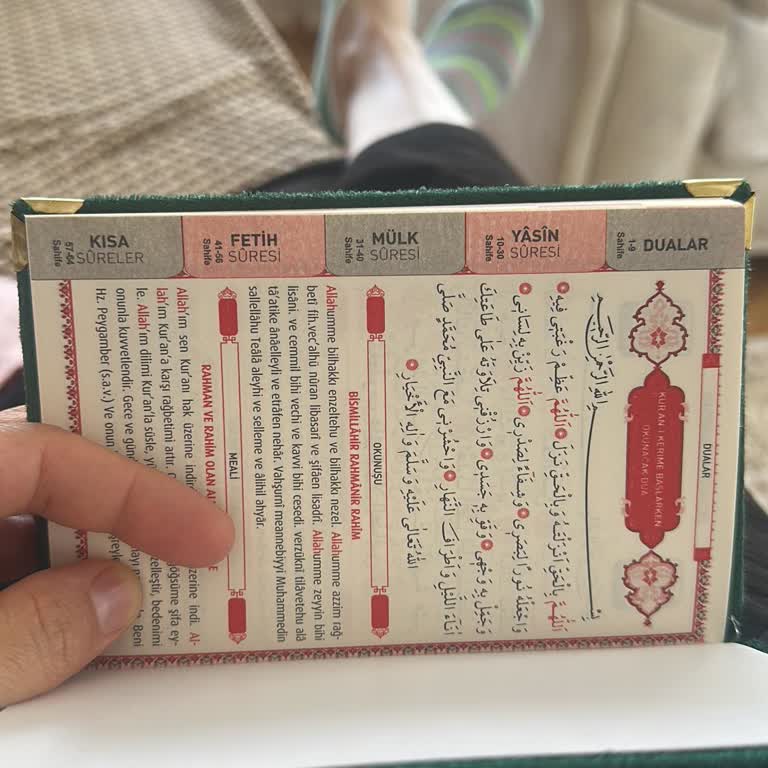 DUALAR
1-9
Sahife
YÂSÎN
SÛRESİ
10-30
Sahife
MÜLK
SÛRESİ
31-40
Sahife
FETİH
SÛRESİ
41-56
Sahife
KISA
SÛRELER
57-64
Sahife
DUALAR
KUR'AN-I KERİME BAŞLARKEN
OKUNACAK DUA
بِسْمِ اللهِ الرَّحْمٰنِ الرَّحِيمِ
اَللّٰهُمَّ بِالْحَقِّ اَنْزَلْتَهُ وَبِالْحَقِّ نَزَلَ اَللّٰهُمَّ عَظِّمْ رَغْبَتِى فِيهِ
وَاجْعَلْهُ نُورًا لِبَصَرِى وَشِفَاءً لِصَدْرِى اَللّٰهُمَّ زَيِّنْ بِهِ لِسَانِى
وَجَمِّلْ بِهِ وَجْهِى وَقَوِّ بِهِ جَسَدِى وَارْزُقْنِى تِلَاوَتَهُ عَلٰى طَاعَتِكَ
اٰنَاءَ اللَّيْلِ وَاَطْرَافَ النَّهَارِ وَاحْشُرْنِى مَعَ النَّبِيِّ مُحَمَّدٍ صَلَّى
اللهُ تَعَالٰى عَلَيْهِ وَسَلَّمَ وَاٰلِهِ الْاَخْيَارِ
OKUNUŞU
BİSMİLLÂHİR RAHMÂNİR RAHÎM
Allahumme bilhakkı enzeltehu ve bilhakkı nezel. Allahumme azzim rağ-
betî fih.vec'alhü nûran libasarî ve şifâen lisadrî. Allahumme zeyyin bihi
lisâni. ve cemmil bihi vechi ve kavvi bihi cesedi. verzükni tilâvetehu alâ
tâ'atike ânâelleyli ve etrâfen nehâr. Vahşurnî meannebiyyi Muhammedin
sallellâhu Teâlâ aleyhi ve selleme ve âlihil ahyâr.
MEALİ
RAHMAN VE RAHİM OLAN
Allah'ım sen Kur'anı hak üzerine indir üzerine indi. Al-
lah'ım Kur'an'a karşı rağbetimi artır. göğsüme şifa ey-
le. Allah'ım dilimi Kur'an'la süsle, bedenimi
onunla kuvvetlendir. Gece ve Beni
Hz. Peygamber (s.a.v.) Ve onun